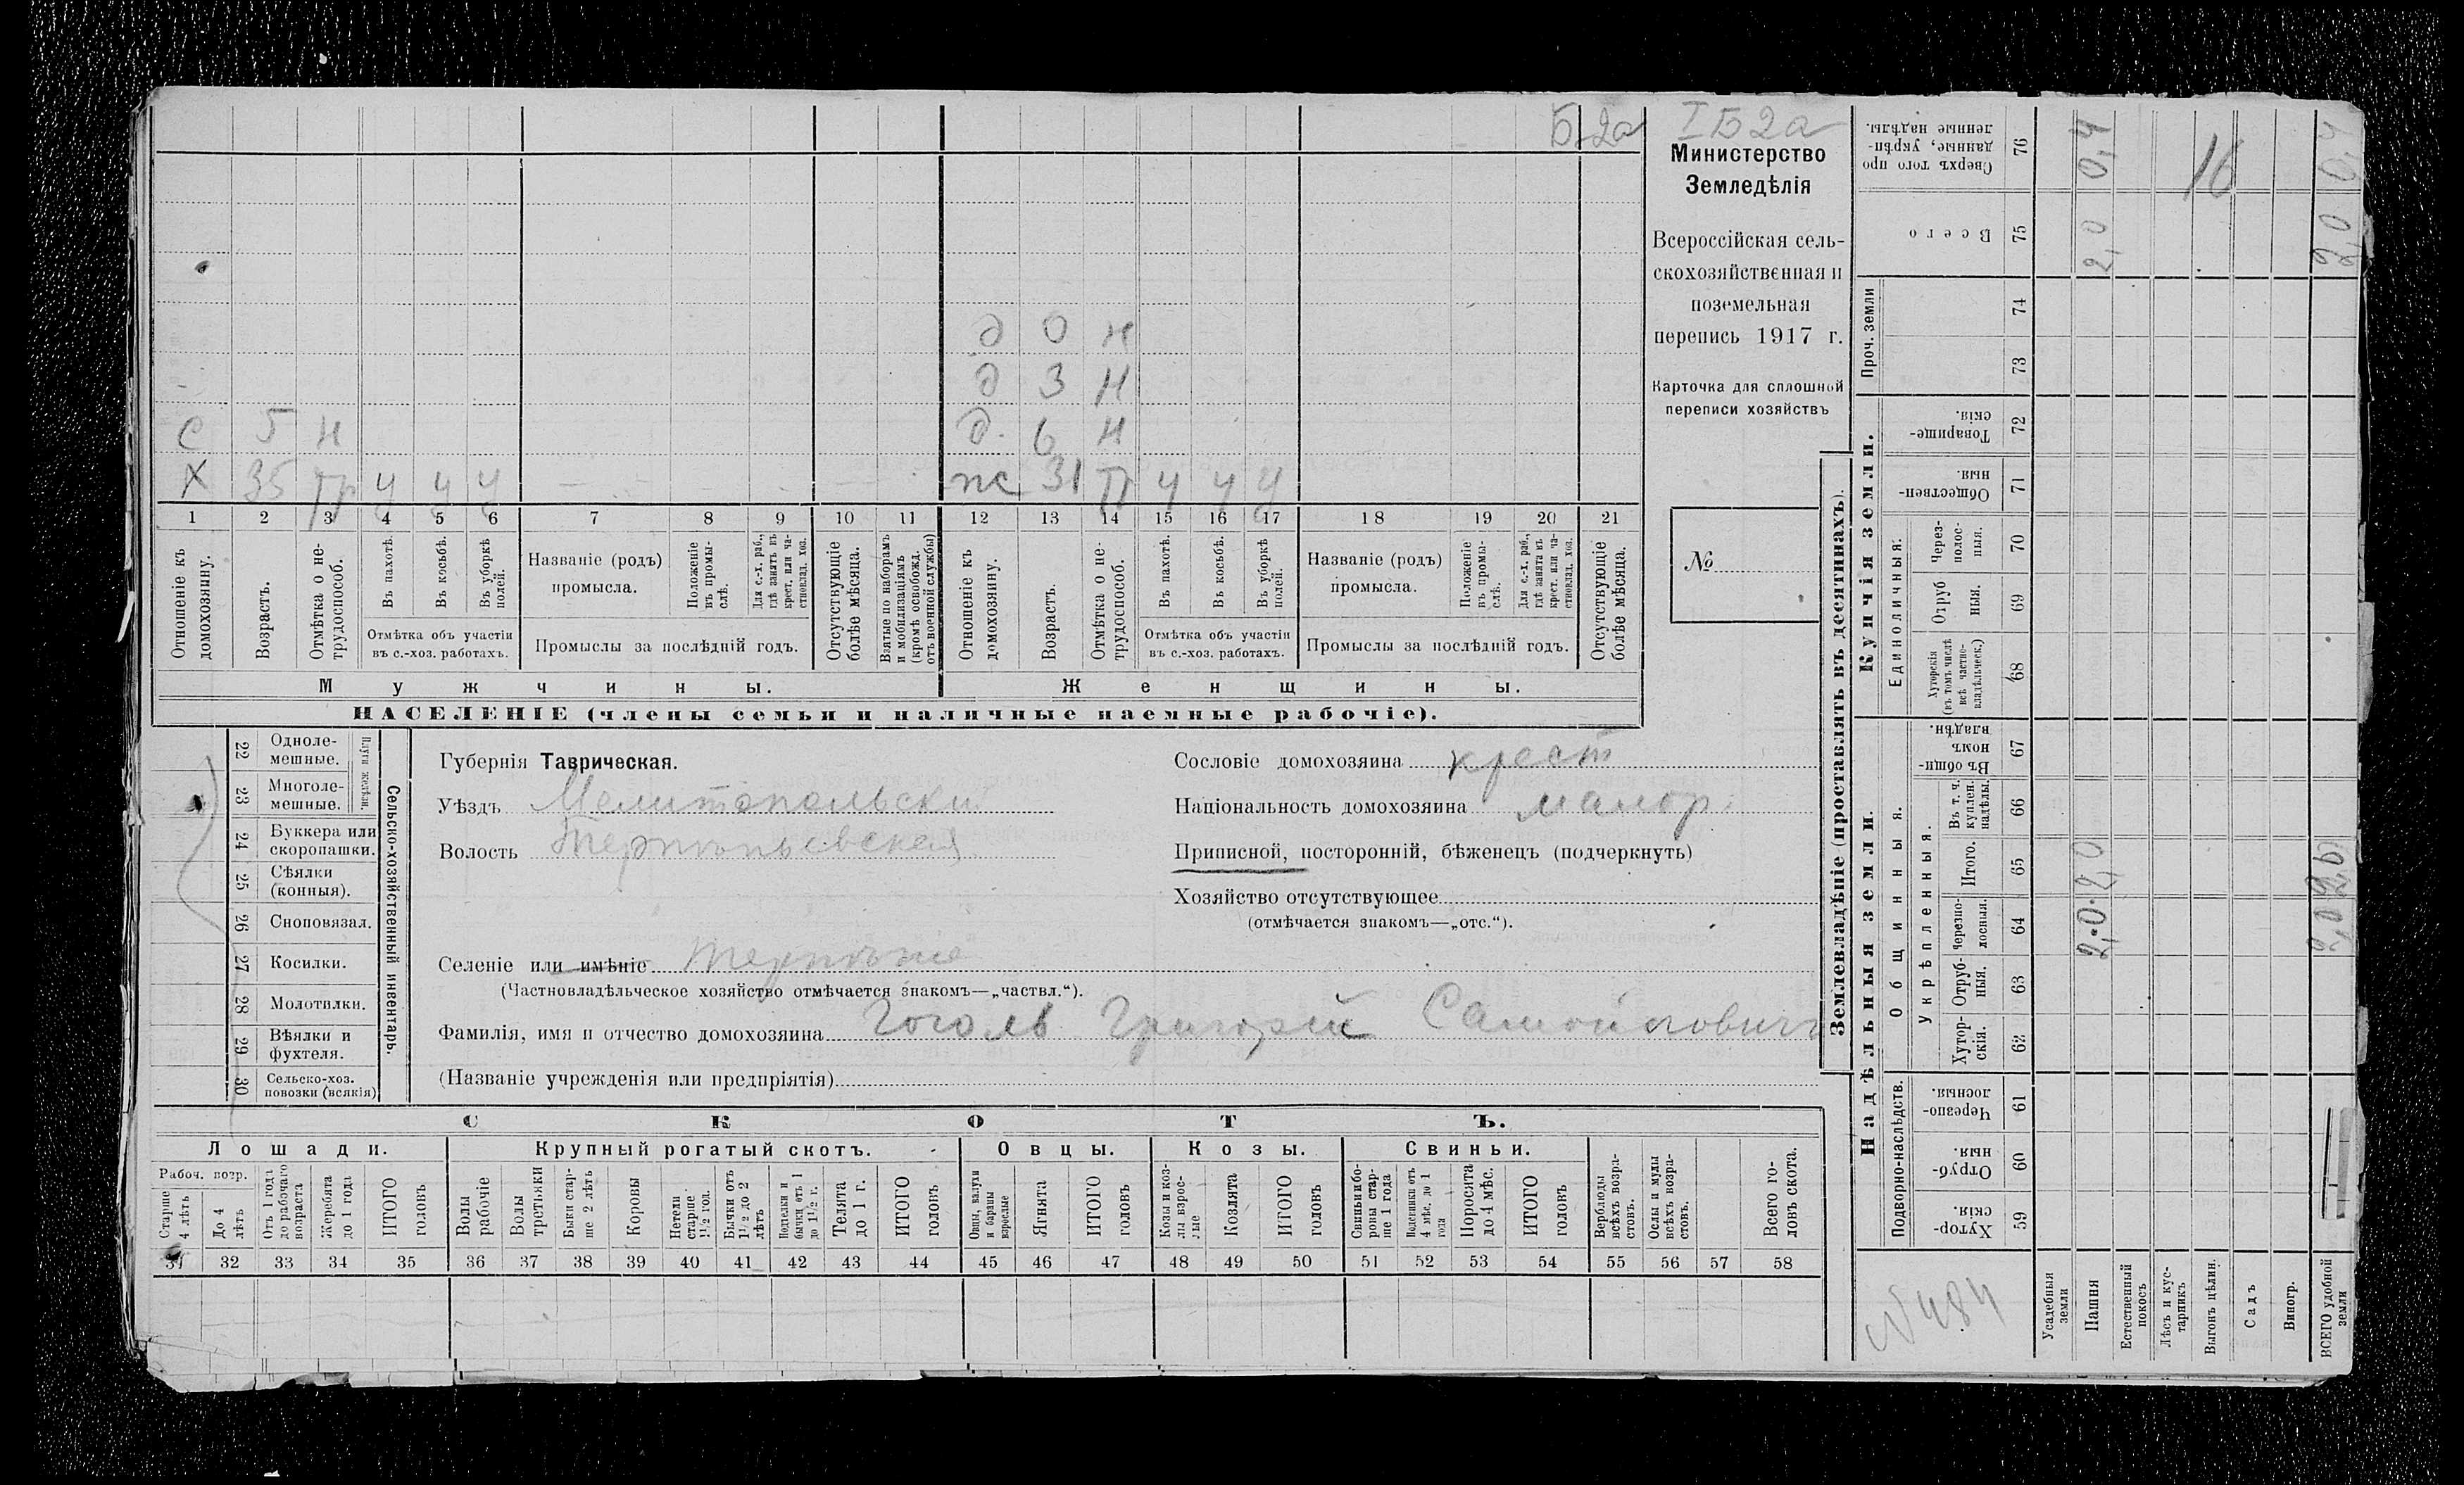 Б2а
д 0 н
д 3 н
с 5 н д. 6 н
Х 35 тр у у у ж 31 тр у у у
1 2 3 4 5 6 7 8 9 10 11 12 13 14 15 16 17 18 19 20 21
Отношеніе къ домохозяину.
Возрастъ.
Отмѣтка о не-
трудоспособ.
Въ пахотѣ.
Въ косьбѣ.
Въ уборкѣ
полей.
Отмѣтка объ участіи
въ с.-хоз. работахъ.
Названіе (родъ)
промысла.
Положеніе
въ промы-
слѣ.
Для с.-х. раб.,
гдѣ занятъ въ
крест. или ча-
стновлад. хоз.
Промыслы за послѣдній годъ.
Отсутствующіе
болѣе мѣсяца.
Взятые по наборамъ
и мобилизаціямъ
(кромѣ освобожд.
отъ военной службы)
Отношеніе къ
домохозяину.
Возрастъ.
Отмѣтка о не-
трудоспособ.
Въ пахотѣ.
Въ косьбѣ.
Въ уборкѣ
полей.
Отмѣтка объ участіи
въ с.-хоз. работахъ.
Названіе (родъ)
промысла.
Положеніе
въ промы-
слѣ.
Для с.-х. раб.,
гдѣ занята въ
крест. или ча-
стновлад. хоз.
Промыслы за послѣдній годъ.
Отсутствующіе
болѣе мѣсяца.
Мужчины.
Женщины.
НАСЕЛЕНІЕ (члены семьи и наличные наемные рабочіе).
I Б 2а
Министерство
Земледѣлія
Всероссійская сель-
скохозяйственная и
поземельная
перепись 1917 г.
Карточка для сплошной
переписи хозяйствъ
№
22 Одноле-
мешные.
23 Многоле-
мешные.
Плуги желѣзн.
24 Буккера или
скоропашки.
25 Сѣялки
(конныя).
26 Сноповязал.
27 Косилки.
28 Молотилки.
29 Вѣялки и
фухтеля.
30 Сельско-хоз.
повозки (всякія)
Сельско-хозяйственный инвентарь.
Губернія Таврическая.
Уѣздъ Мелитопольски
Волость Терпеньевская
Селеніе или имѣніе Терпѣніе
(Частновладѣльческое хозяйство отмѣчается знакомъ—„частвл.“).
Фамилія, имя и отчество домохозяина Гоголь Григорій Самойловичъ
(Названіе учрежденія или предпріятія)
Сословіе домохозяина крест
Національность домохозяина малор.
Приписной, посторонній, бѣженецъ (подчеркнуть)
Хозяйство отсутствующее
(отмѣчается знакомъ—„отс.“).
СКОТЪ.
Лошади.
Крупный рогатый скотъ.
Овцы.
Козы.
Свиньи.
Рабоч. возр.
Старше
4 лѣтъ
До 4
лѣтъ
Отъ 1 года
до рабочаго
возраста
Жеребята
до 1 года
ИТОГО
головъ
Волы
рабочіе
Волы
третьяки
Быки стар-
ше 2 лѣтъ
Коровы
Нетели
старше
1½ год.
Бычки отъ
1½ до 2
лѣтъ
Подтелки и
бычки отъ 1
до 1½ г.
Телята
до 1 г.
ИТОГО
головъ
Овцы, валухи
и бараны
взрослые
Ягнята
ИТОГО
головъ
Козы и коз-
лы взрос-
лые
Козлята
ИТОГО
головъ
Свиньи и бо-
ровы стар-
ше 1 года
Подсвинки отъ
4 мѣс. до 1
года
Поросята
до 4 мѣс.
ИТОГО
головъ
Верблюды
всѣхъ возра-
стовъ.
Ослы и мулы
всѣхъ возра-
стовъ.
Всего го-
ловъ скота.
31 32 33 34 35 36 37 38 39 40 41 42 43 44 45 46 47 48 49 50 51 52 53 54 55 56 57 58
Землевладѣніе (проставлять въ десятинахъ).
Надѣльныя земли.
Купчія земли.
Проч. земли
Подворно-наслѣдств.
Общинныя.
Укрѣпленныя.
Единоличныя:
Сверхъ того про
данные, укрѣп-
ленные надѣлы. 76
Всего 75
74
73
Товарище-
скія. 72
Обществен-
ныя. 71
Через-
полос-
ныя. 70
Отруб
ныя. 69
Хуторскія
(въ томъ числѣ
всѣ частно-
владѣльческ.) 68
Въ общи-
номъ
владѣн. 67
Въ т. ч.
куплен.
надѣлы. 66
Итого. 65
Черезпо-
лосныя. 64
Отруб-
ныя. 63
Хутор-
скія. 62
Черезпо-
лосныя 61
Отруб-
ныя. 60
Хутор-
скія. 59
Усадебныя
земли
Пашня 2,0 2,0 2,0 0,4
Естественный
покосъ
Лѣсъ и кус-
тарникъ
Выгонъ цѣлин.
Садъ
Виногр.
ВСЕГО удобной
земли 2,0 2,0 2,0 0,4
16
№484